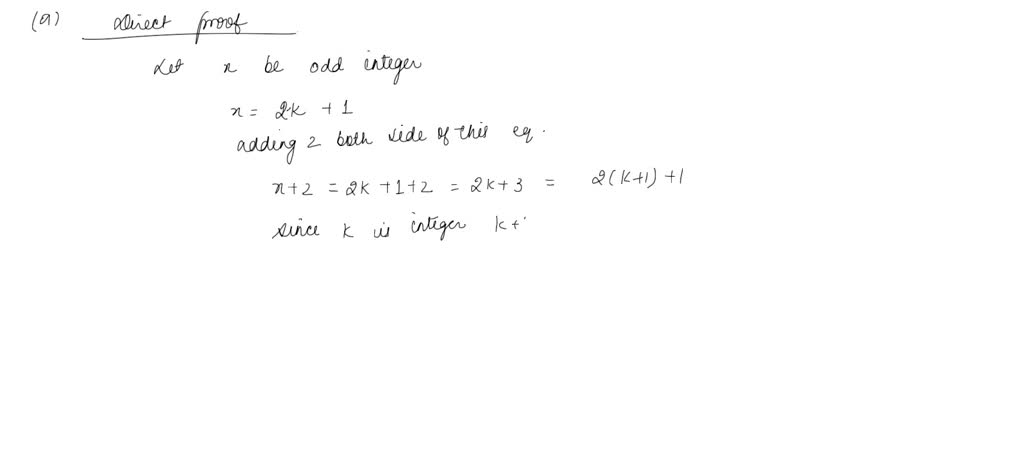 (a) Direct proof
Let n be odd integer
n = 2k + 1
adding 2 both side of this eq.
n+2 = 2k +1+2 = 2k+3 = 2(k+1)+1
since k is integer k+